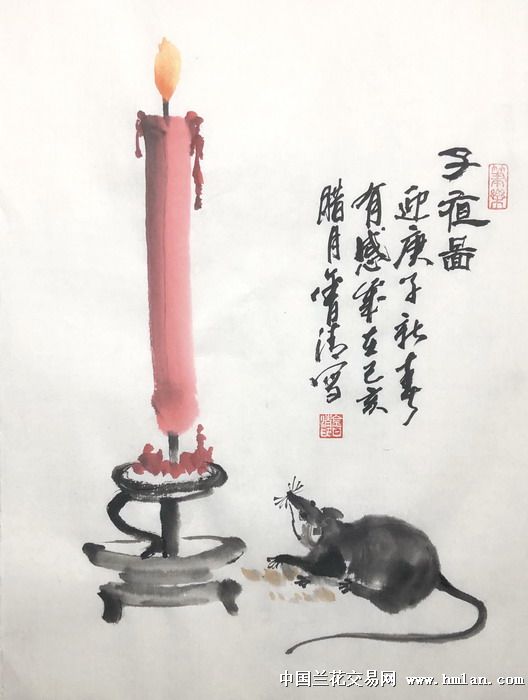 子啚
迎庚子新春
有感歲在己亥
腊月清写
中国兰花交易网 www.hmlan.com